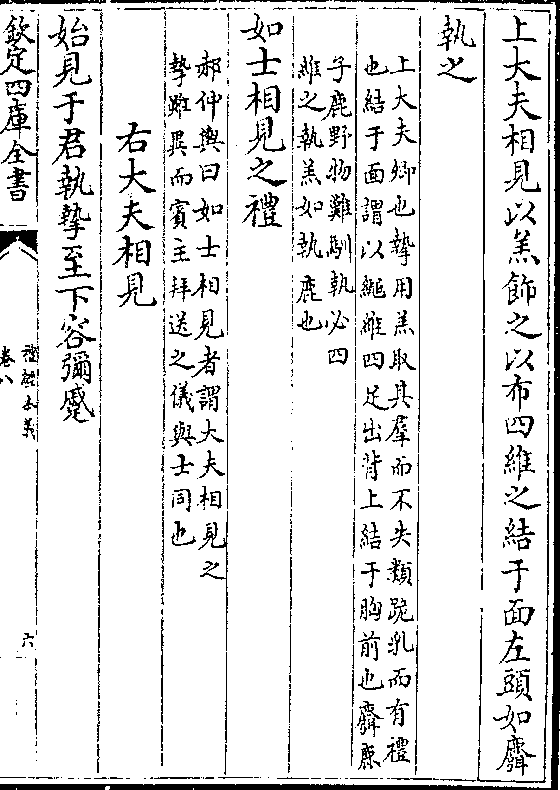 上大夫相見以羔飾之以布四維之結于面左頭如麛
執之
上大夫卿也摯用羔取其羣而不失類跪乳而有禮
也結于面謂以繩維四足出背上結于胸前也麛鹿
子鹿野物難馴執必四
維之執羔如執鹿也
如士相見之禮
郝仲輿曰如士相見者謂大夫相見之
摯雖異而賓主拜送之儀與士同也
右大夫相見
始見于君執摯至下容彌蹙
欽定四庫全書
禮經本義
卷八
六